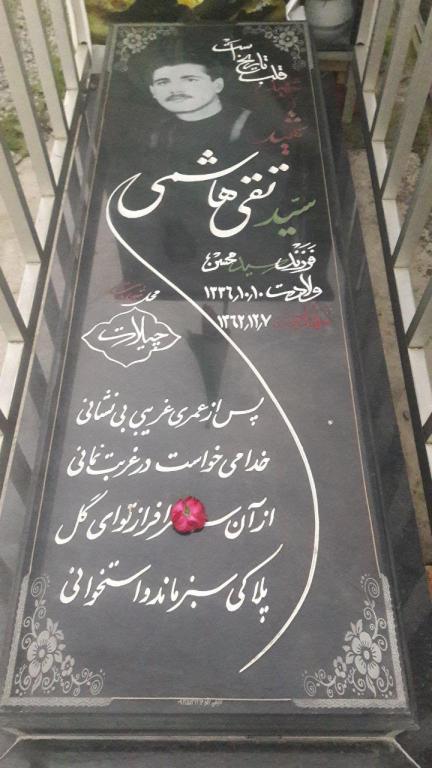 شهید قلب تاریخ است
شهید
سیّد تقی هاشمی
فرزند سید محسن
ولادت ۱۳۳۶٫۱۰٫۱۰
شهادت ۱۳۶۲٫۱۲٫۷
محل شهادت
چیلات
پس از عمری غریبی بی نشانی
خدا می خواست در غربت نمانی
از آن سرو سرافراز تو ای گل
پلاکی سبز ماند و استخوانی